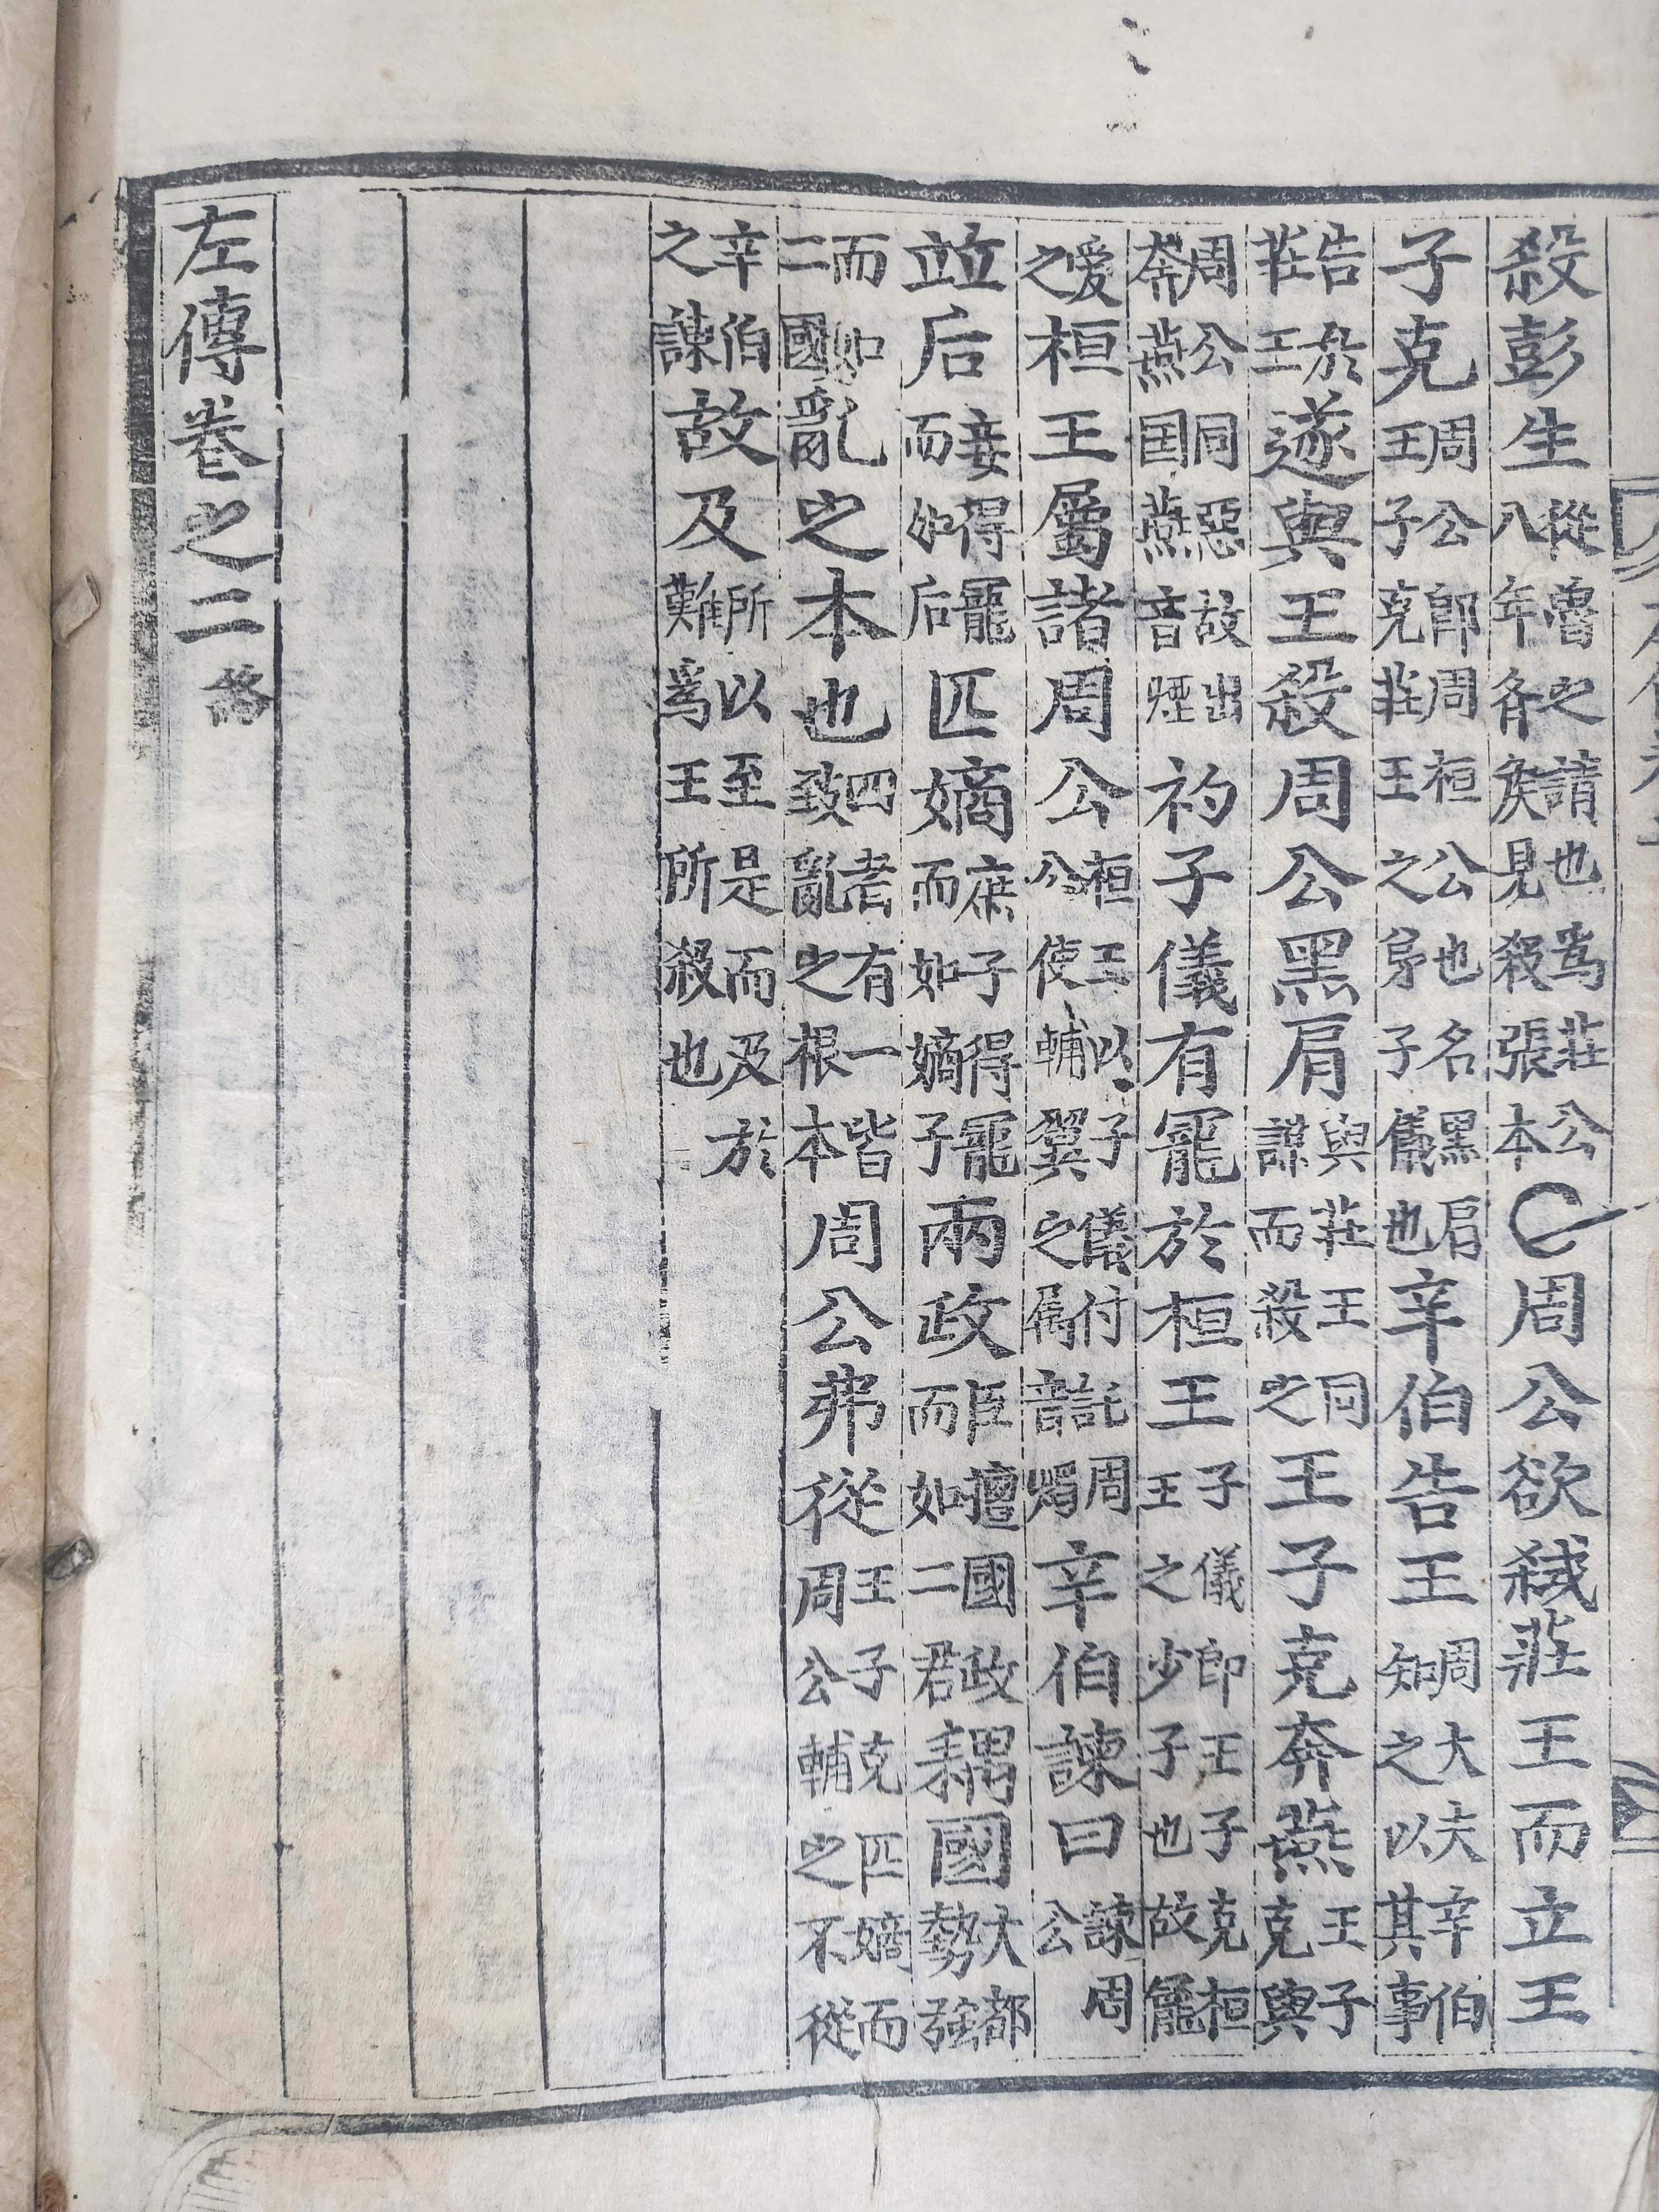 殺彭生從魯之請也爲莊公八年齊矦見殺張本○周公欲弒莊王而立王
子克周公即周桓公也名黑肩王子克莊王之弟子儀也辛伯告王周大夫辛伯知之以其事
告於莊王遂與王殺周公黑肩與莊王同謀而殺之王子克奔燕王子克與
周公同惡故出奔燕国燕音煙初子儀有寵於桓王子儀即王子克桓王之少子也故寵
愛之桓王屬諸周公桓王以子儀付託周公使輔翼之屬音燭辛伯諫曰諫周公
竝后妾得寵而如后匹嫡庶子得寵而如嫡子兩政臣擅國政而如二君耦國大都勢強
而如二國亂之本也四者有一皆致亂之根本周公弗從王子克匹嫡而周公輔之不從
辛伯之諫故及所以至是而及於難爲王所殺也
左傳卷之二終